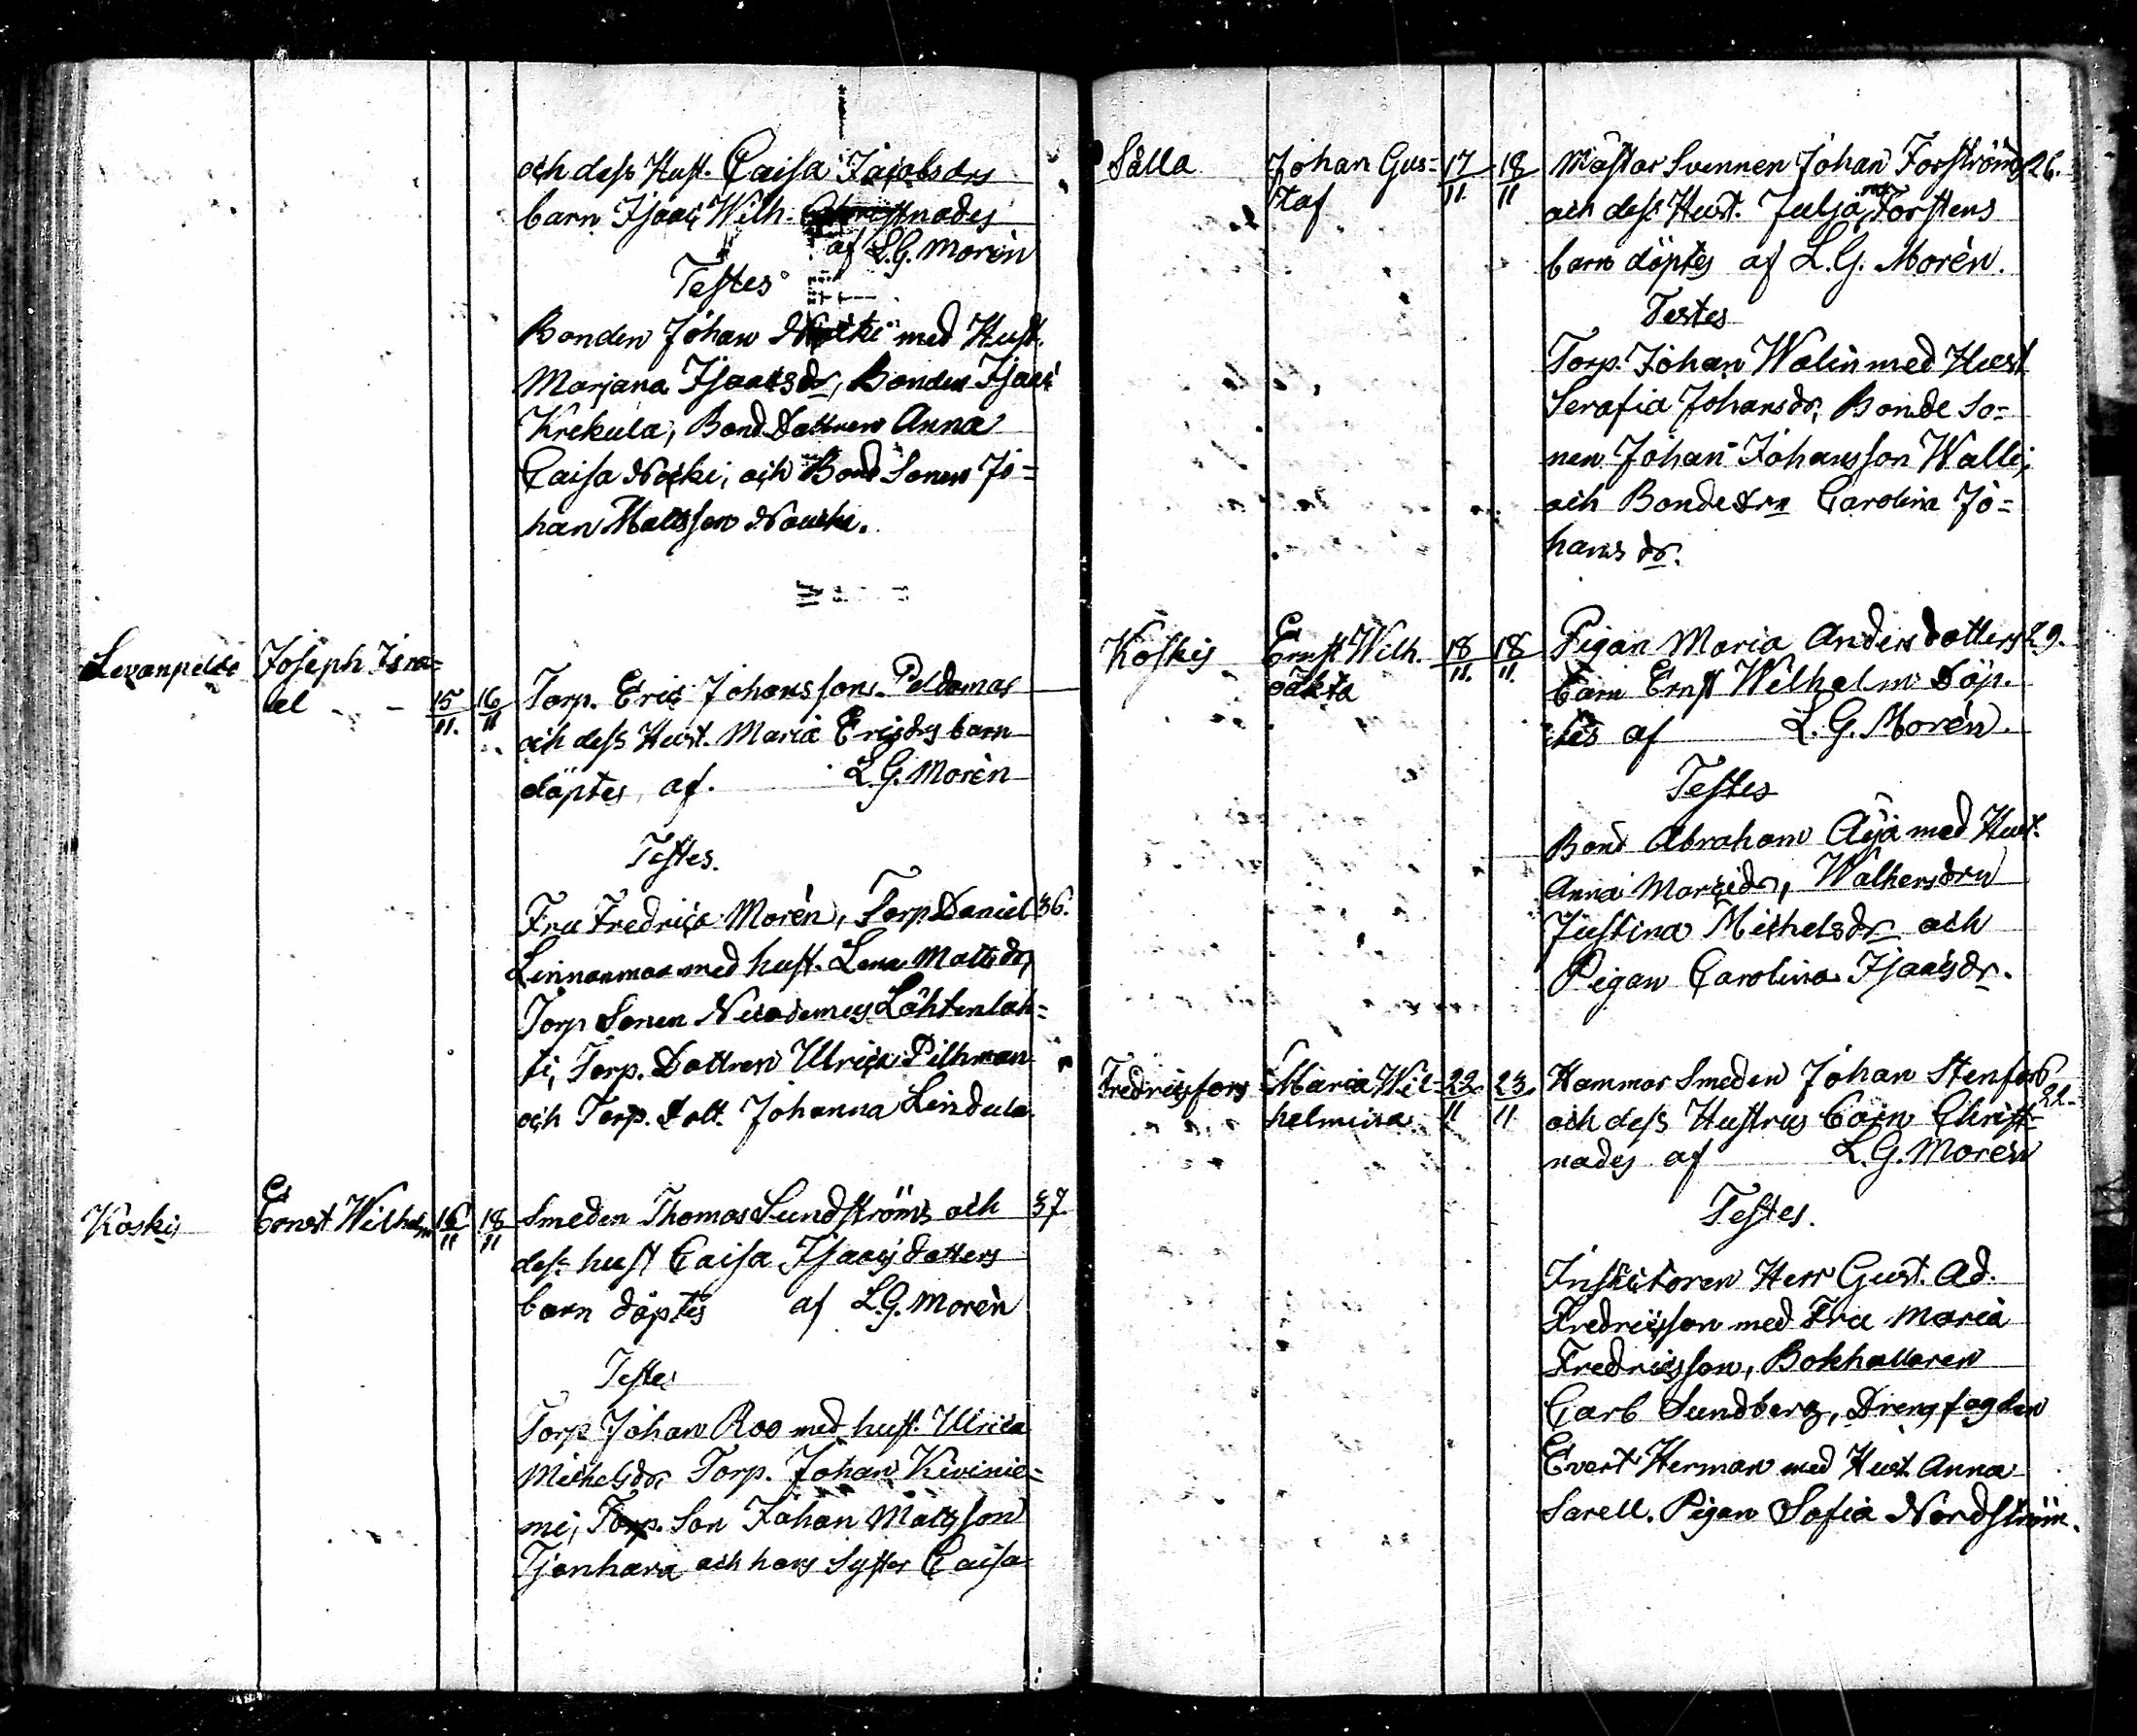 och dess Hust. Caisa Jacobsdrs
barn Isaac Wilh. Christnades
af L.G. Morén
Testes
Bonden Johan Nouki med Hust.
Marjana Isaacsdr, Bonden Isaac
Krekula, Bond Dottren Anna
Caisa Nouki, och Bond Sonen Jo=
han Mattsson Nouki.
Levanpelto
Joseph Isra=
el - -
15/11. 16/11
Torp. Eric Johansson Peldomas
och dess Hust. Maria Ericsdrs barn
döptes af. L.G. Morén
Testes.
Fru Fredrica Morén, Torp Daniel 36.
Linnanmaa med hust. Lena Mattsdr,
Torp Sonen Nicodemus Lähtenlah=
ti, Torp. Dottren Ulrica Pilhman
och Torp. Dott. Johanna Lindula
Koskis
Ernst Wilhelm
16/11 18/11
Smeden Thomas Sundströms och 37.
dess hust Caisa Isaacsdotters
barn döptes af L.G. Morén
Testes
Torp Johan Roo med hust. Ulrica
Michelsdr, Torp. Johan Kivinie=
mi, Torp. Son Johan Mattsson
Tjenhara och hans Syster Caisa
Sålla
Johan Gus=
taf
17/11. 18/11
Mästar Svennen Johan Forströms 26.
och dess Hust. Julja Torstens
barn döptes af L.G. Morén.
Testes
Torp. Johan Walin med Hust
Serafia Johansdr, Bonde So=
nen Johan Johansson Walli,
och Bondedrn Carolina Jo=
hansdr.
Koskis
Ernst Wilh.
oäkta
18/11. 18/11.
Pigan Maria Andersdotters 29.
barn Ernst Wilhelm döp.
tes af L.G. Morén.
Testes
Bond Abraham Äijä med Hust.
Anna Maricidr, Walkersdrn
Justina Michelsdr och
Pigan Carolina Isaacsdr.
Fredricsfors
Maria Wil=
helmina
22/11 23/11
Hammar Smeden Johan Stenfors
och dess Hustrus barn Christ= 22.
nades af L.G. Morén
Testes.
Inspectoren Herr Gust. Ad.
Fredricsson med Fru Maria
Fredricsson, Bokhållaren
Carl Sundberg, Drengfogden
Evert Herman med Hust. Anna
Sarell. Pigan Sofia Nordström.